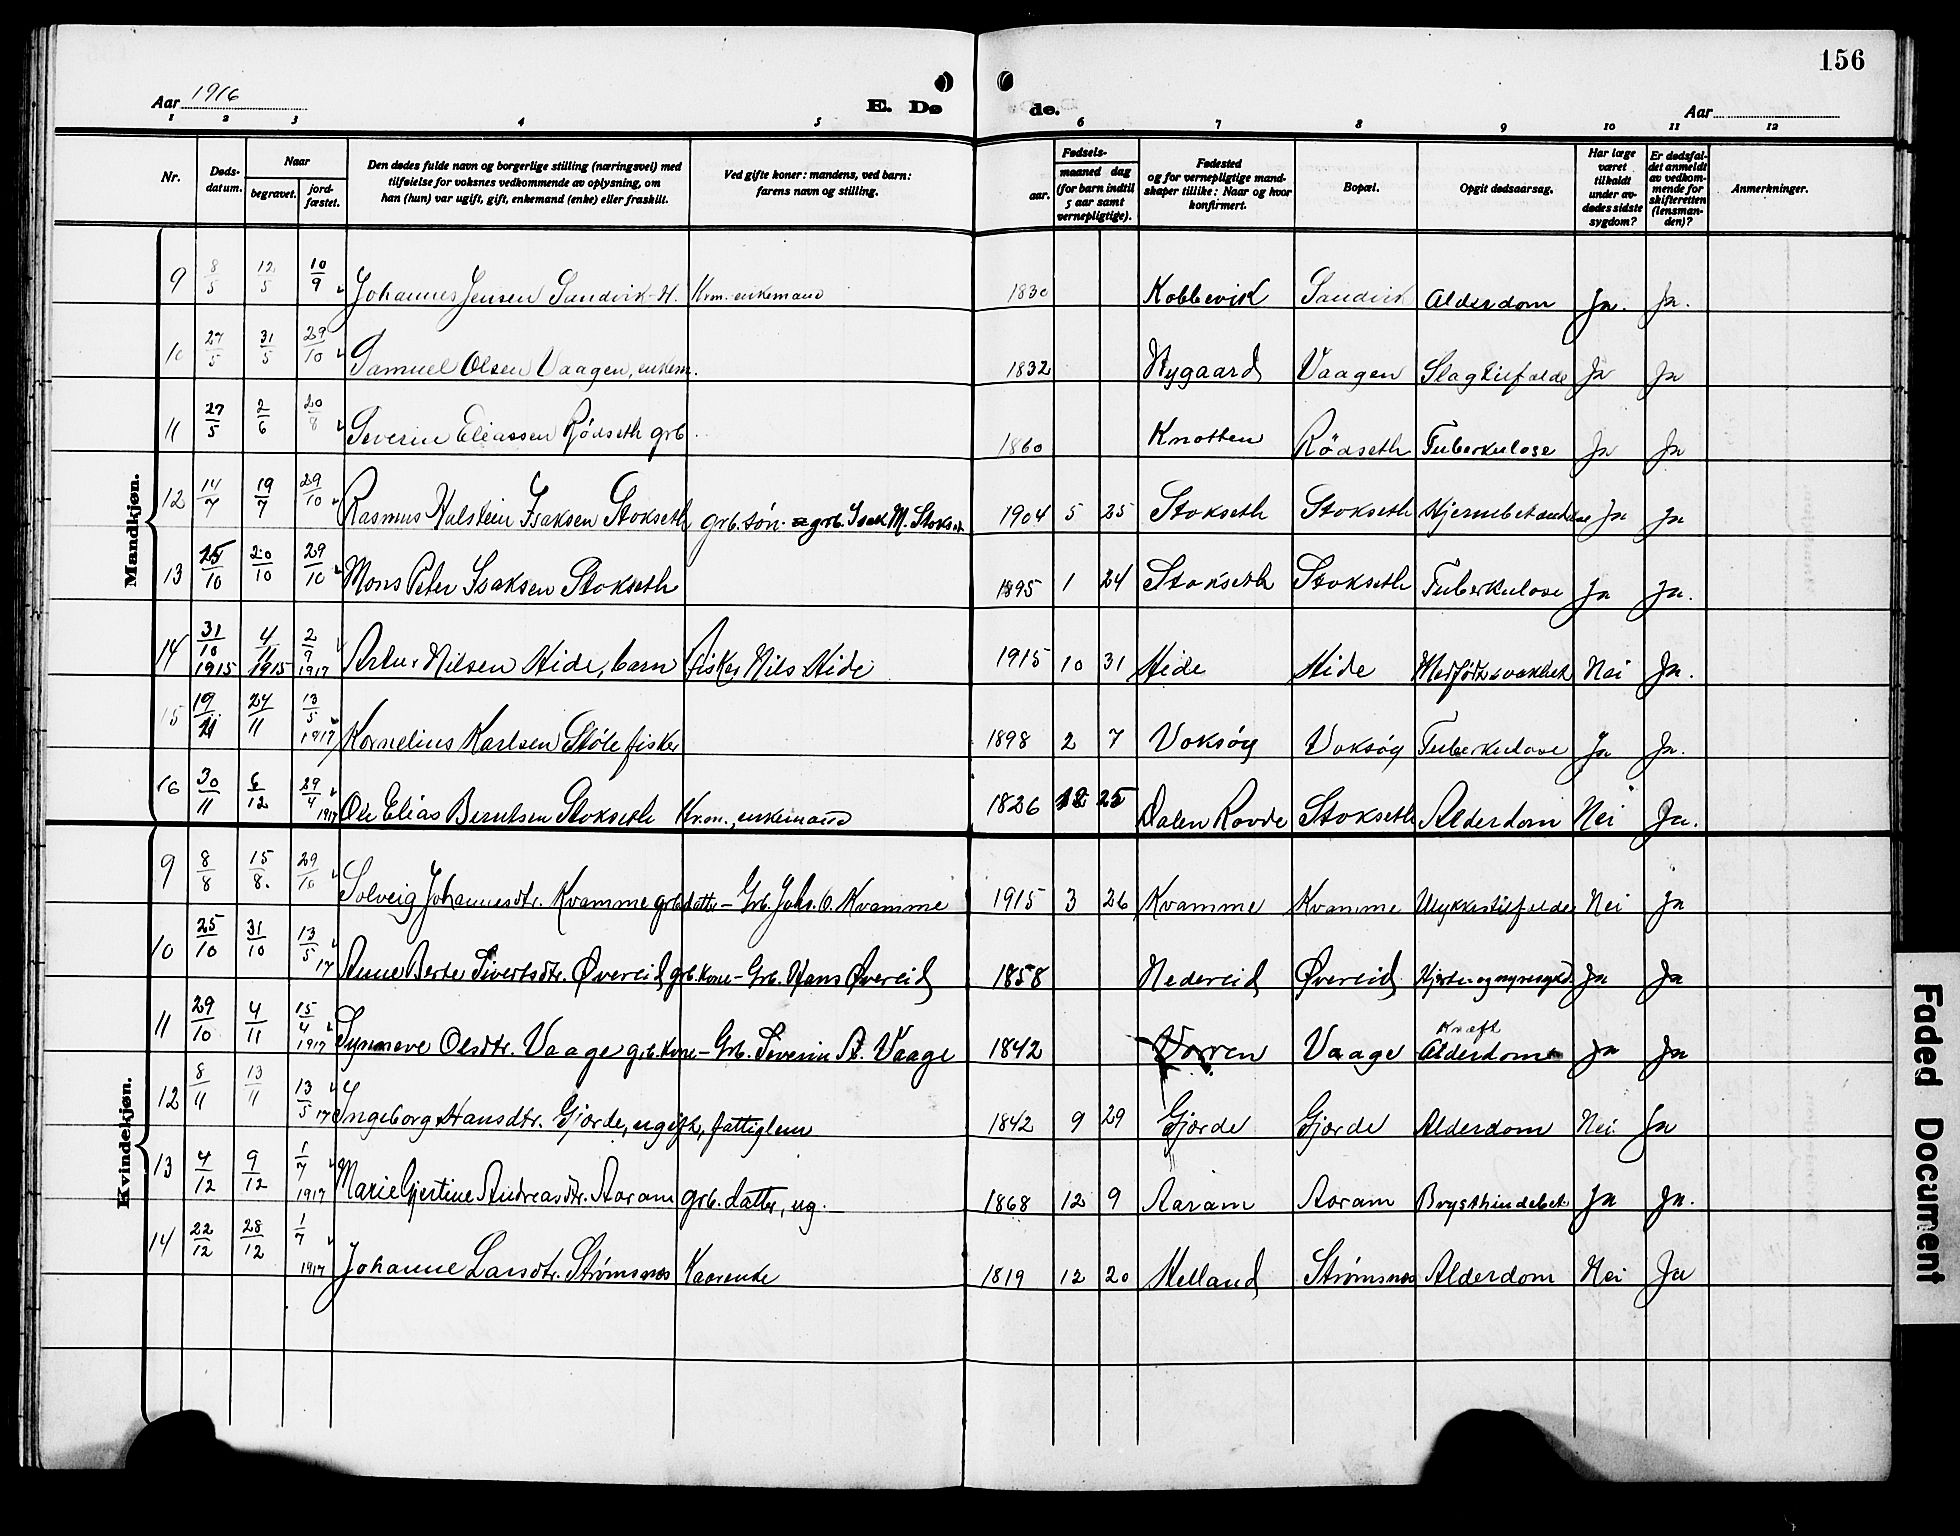 156
Aar 1916
E. Døde.
Aar
1 2 3 4 5 6 7 8 9 10 11 12
Nr.
Døds-datum.
Naar
begravet.
jord-fæstet.
Den dødes fulde navn og borgerlige stilling (næringsvei) med
tilføielse for voksnes vedkommende av oplysning, om
han (hun) var ugift, gift, enkemand (enke) eller fraskilt.
Ved gifte koner: mandens, ved barn:
farens navn og stilling.
Fødsels-
aar.
maaned dag
(for barn indtil
5 aar samt
vernepligtige).
Fødested
og for vernepligtige mand-
skaper tillike: Naar og hvor
konfirmert.
Bopæl.
Opgit dødsaarsag.
Har læge
været
tilkaldt
under av-
dødes sidste
sygdom?
Er dødsfal-
det anmeldt
av vedkom-
mende for
skifteretten
(lensman-
den)?
Anmerkninger.
Mandkjøn.
9 8/5 12/5 10/9 Johannes Jensen Sandvik-H. Krm. enkemand 1830 Kobbevik Sandvik Alderdom Ja. Ja.
10 27/5 31/5 29/10 Samuel Olsen Vaagen, enkem. 1832 Nygaard Vaagen Slagtilfælde Ja Ja
11 27/5 2/6 20/8 Severin Eliassen Rødseth grb. 1860 Knotten Rødseth Tuberkulose Ja Ja
12 14/7 19/7 29/10 Rasmus Halstein Isaksen Stokseth grb. søn - grb. Isak M. Stokset 1904 5 25 Stokseth Stokseth Hjernebetændelse Ja Ja
13 15/10 20/10 29/10 Mons Peter Isaksen Stokseth 1895 1 24 Stokseth Stokseth Tuberkulose Ja Ja.
14 31/10 1915 4/11 1915 2/9 1917 Artur Nilsen Hide, barn fisker Nils Hide 1915 10 31 Hide Hide Medfødt svakhet Nei Ja.
15 19/11 24/11 13/5 1917 Kornelius Karlsen Støle fisker 1898 2 7 Voksøy Voksøy Tuberkulose Ja Ja.
16 30/11 6/12 29/4 1917 Ole Elias Berntsen Stokseth Krm., enkemand 1826 12 25 Dalen Rovde Stokseth Alderdom Nei Ja.
Kvindekjøn.
9 8/8 15/8. 29/10 Solveig Johannesdtr. Kvamme grb. datter - Grb. Johs. O. Kvamme 1915 3 26 Kvamme Kvamme Ulykkestilfælde Nei Ja
10 25/10 31/10 13/5 17 Anne Berte Sivertsdtr. Øvereid grb. kone - Grb. Hans Øvereid 1858 Nedereid Øvereid Hjerte- og nyresygd. Ja Ja
11 29/10 4/11 15/4 1917 Synneve Olsdtr. Vaage grb. kone - Grb. Severin A. Vaage 1842 Vorren Vaage Kræft Alderdom Ja Ja
12 8/11 13/11 13/5 17 Ingeborg Hansdtr. Gjørde, ugift, fattiglem 1842 9 29 Gjørde Gjørde Alderdom Nei Ja
13 4/12 9/12 1/7 1917 Marie Gjertine Andreasdtr. Aaram grb. datter, ug. 1868 12 9 Aaram Aaram Brysthindebet. Ja Ja.
14 22/12 28/12 1/7 1917 Johanne Larsdtr. Strømsnes Kaarenke 1819 12 20 Helland Strømsnes Alderdom Nei Ja
Faded Document